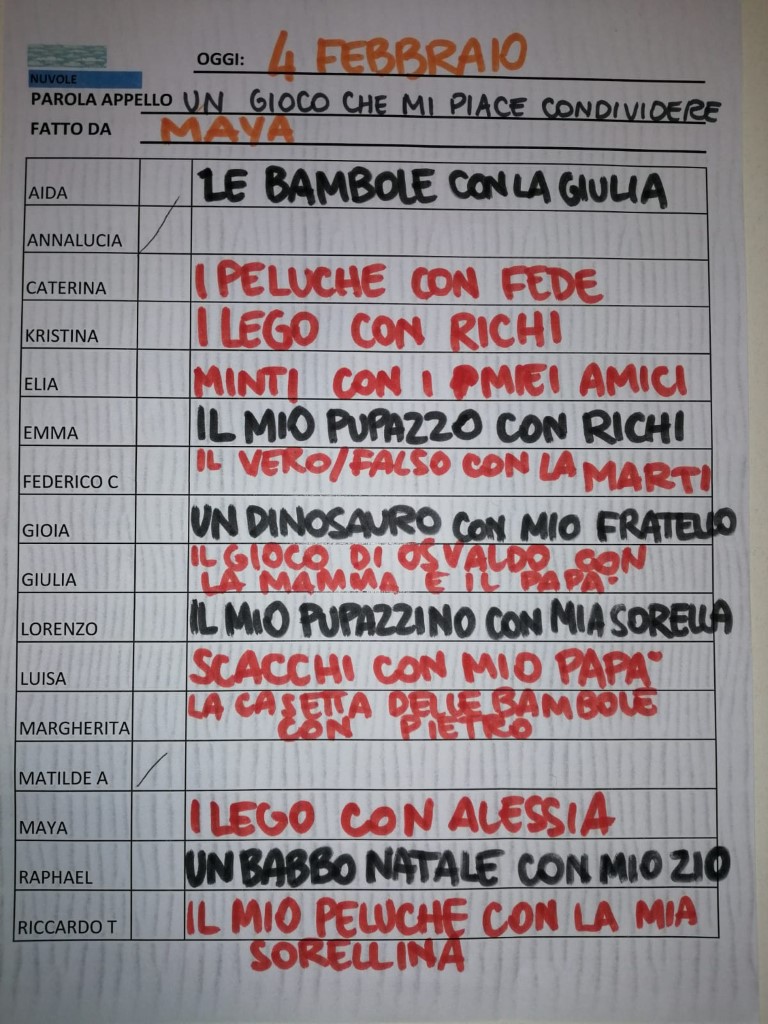 OGGI: 4 FEBBRAIO
NUVOLE
PAROLA APPELLO UN GIOCO CHE MI PIACE CONDIVIDERE
FATTO DA MAYA
AIDA LE BAMBOLE CON LA GIULIA
ANNALUCIA
CATERINA I PELUCHE CON FEDE
KRISTINA I LEGO CON RICHI
ELIA MINTI CON I MIEI AMICI
EMMA IL MIO PUPAZZO CON RICHI
FEDERICO C IL VERO/FALSO CON LA MARTI
GIOIA UN DINOSAURO CON MIO FRATELLO
GIULIA IL GIOCO DI OSVALDO CON
LA MAMMA E IL PAPA'
LORENZO IL MIO PUPAZZINO CON MIA SORELLA
LUISA SCACCHI CON MIO PAPA'
MARGHERITA LA CASETTA DELLE BAMBOLE
CON PIETRO
MATILDE A
MAYA I LEGO CON ALESSIA
RAPHAEL UN BABBO NATALE CON MIO ZIO
RICCARDO T IL MIO PELUCHE CON LA MIA
SORELLINA